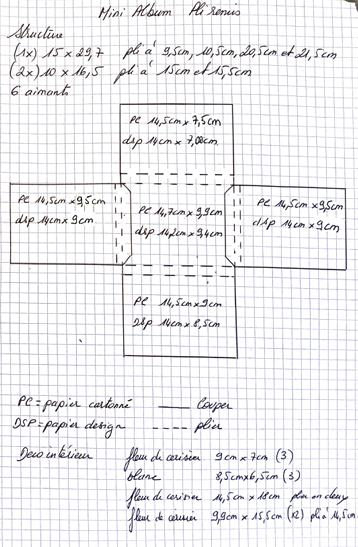 Mini Album Pli remis
Structure
(1x) 15 x 29,7 pli à 9,5cm, 10,5cm, 20,5cm et 21,5cm
(2x) 10 x 16,5 pli à 15cm et 15,5cm
6 aimants
PC 14,5cm x 7,5cm
dsp 14cm x 7,00cm
PC 14,5cm x 9,5cm
dsp 14cm x 9cm
PC 14,7cm x 9,9cm
dsp 14,2cm x 9,4cm
PC 14,5cm x 9,5cm
dsp 14cm x 9cm
PC 14,5cm x 9cm
DSP 14cm x 8,5cm
PC = papier cartonné Couper
DSP = papier design plier
Deco intérieur fleur de cerisier 9cm x 7cm (3)
blanc 8,5cm x 6,5cm (3)
fleur de cerisier 14,5cm x 18cm plier en deux
fleur de cerisier 9,9cm x 15,5cm (x2) pli à 14,5cm